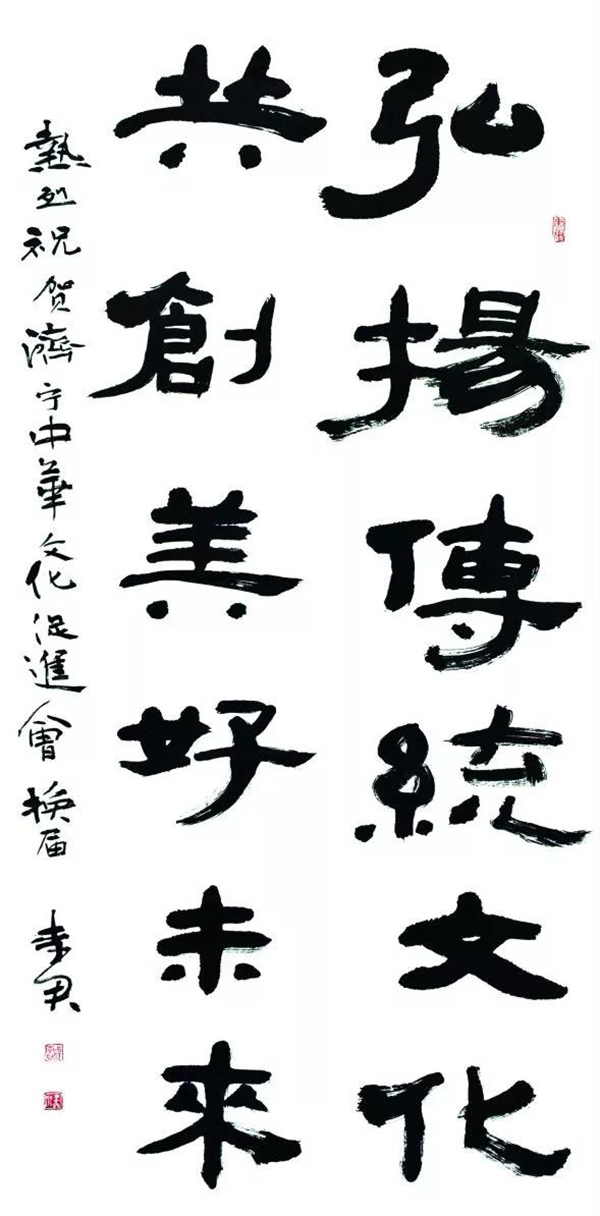 弘揚傳統文化
共創美好未來
熱烈祝贺濟宁中華文化促進會換届